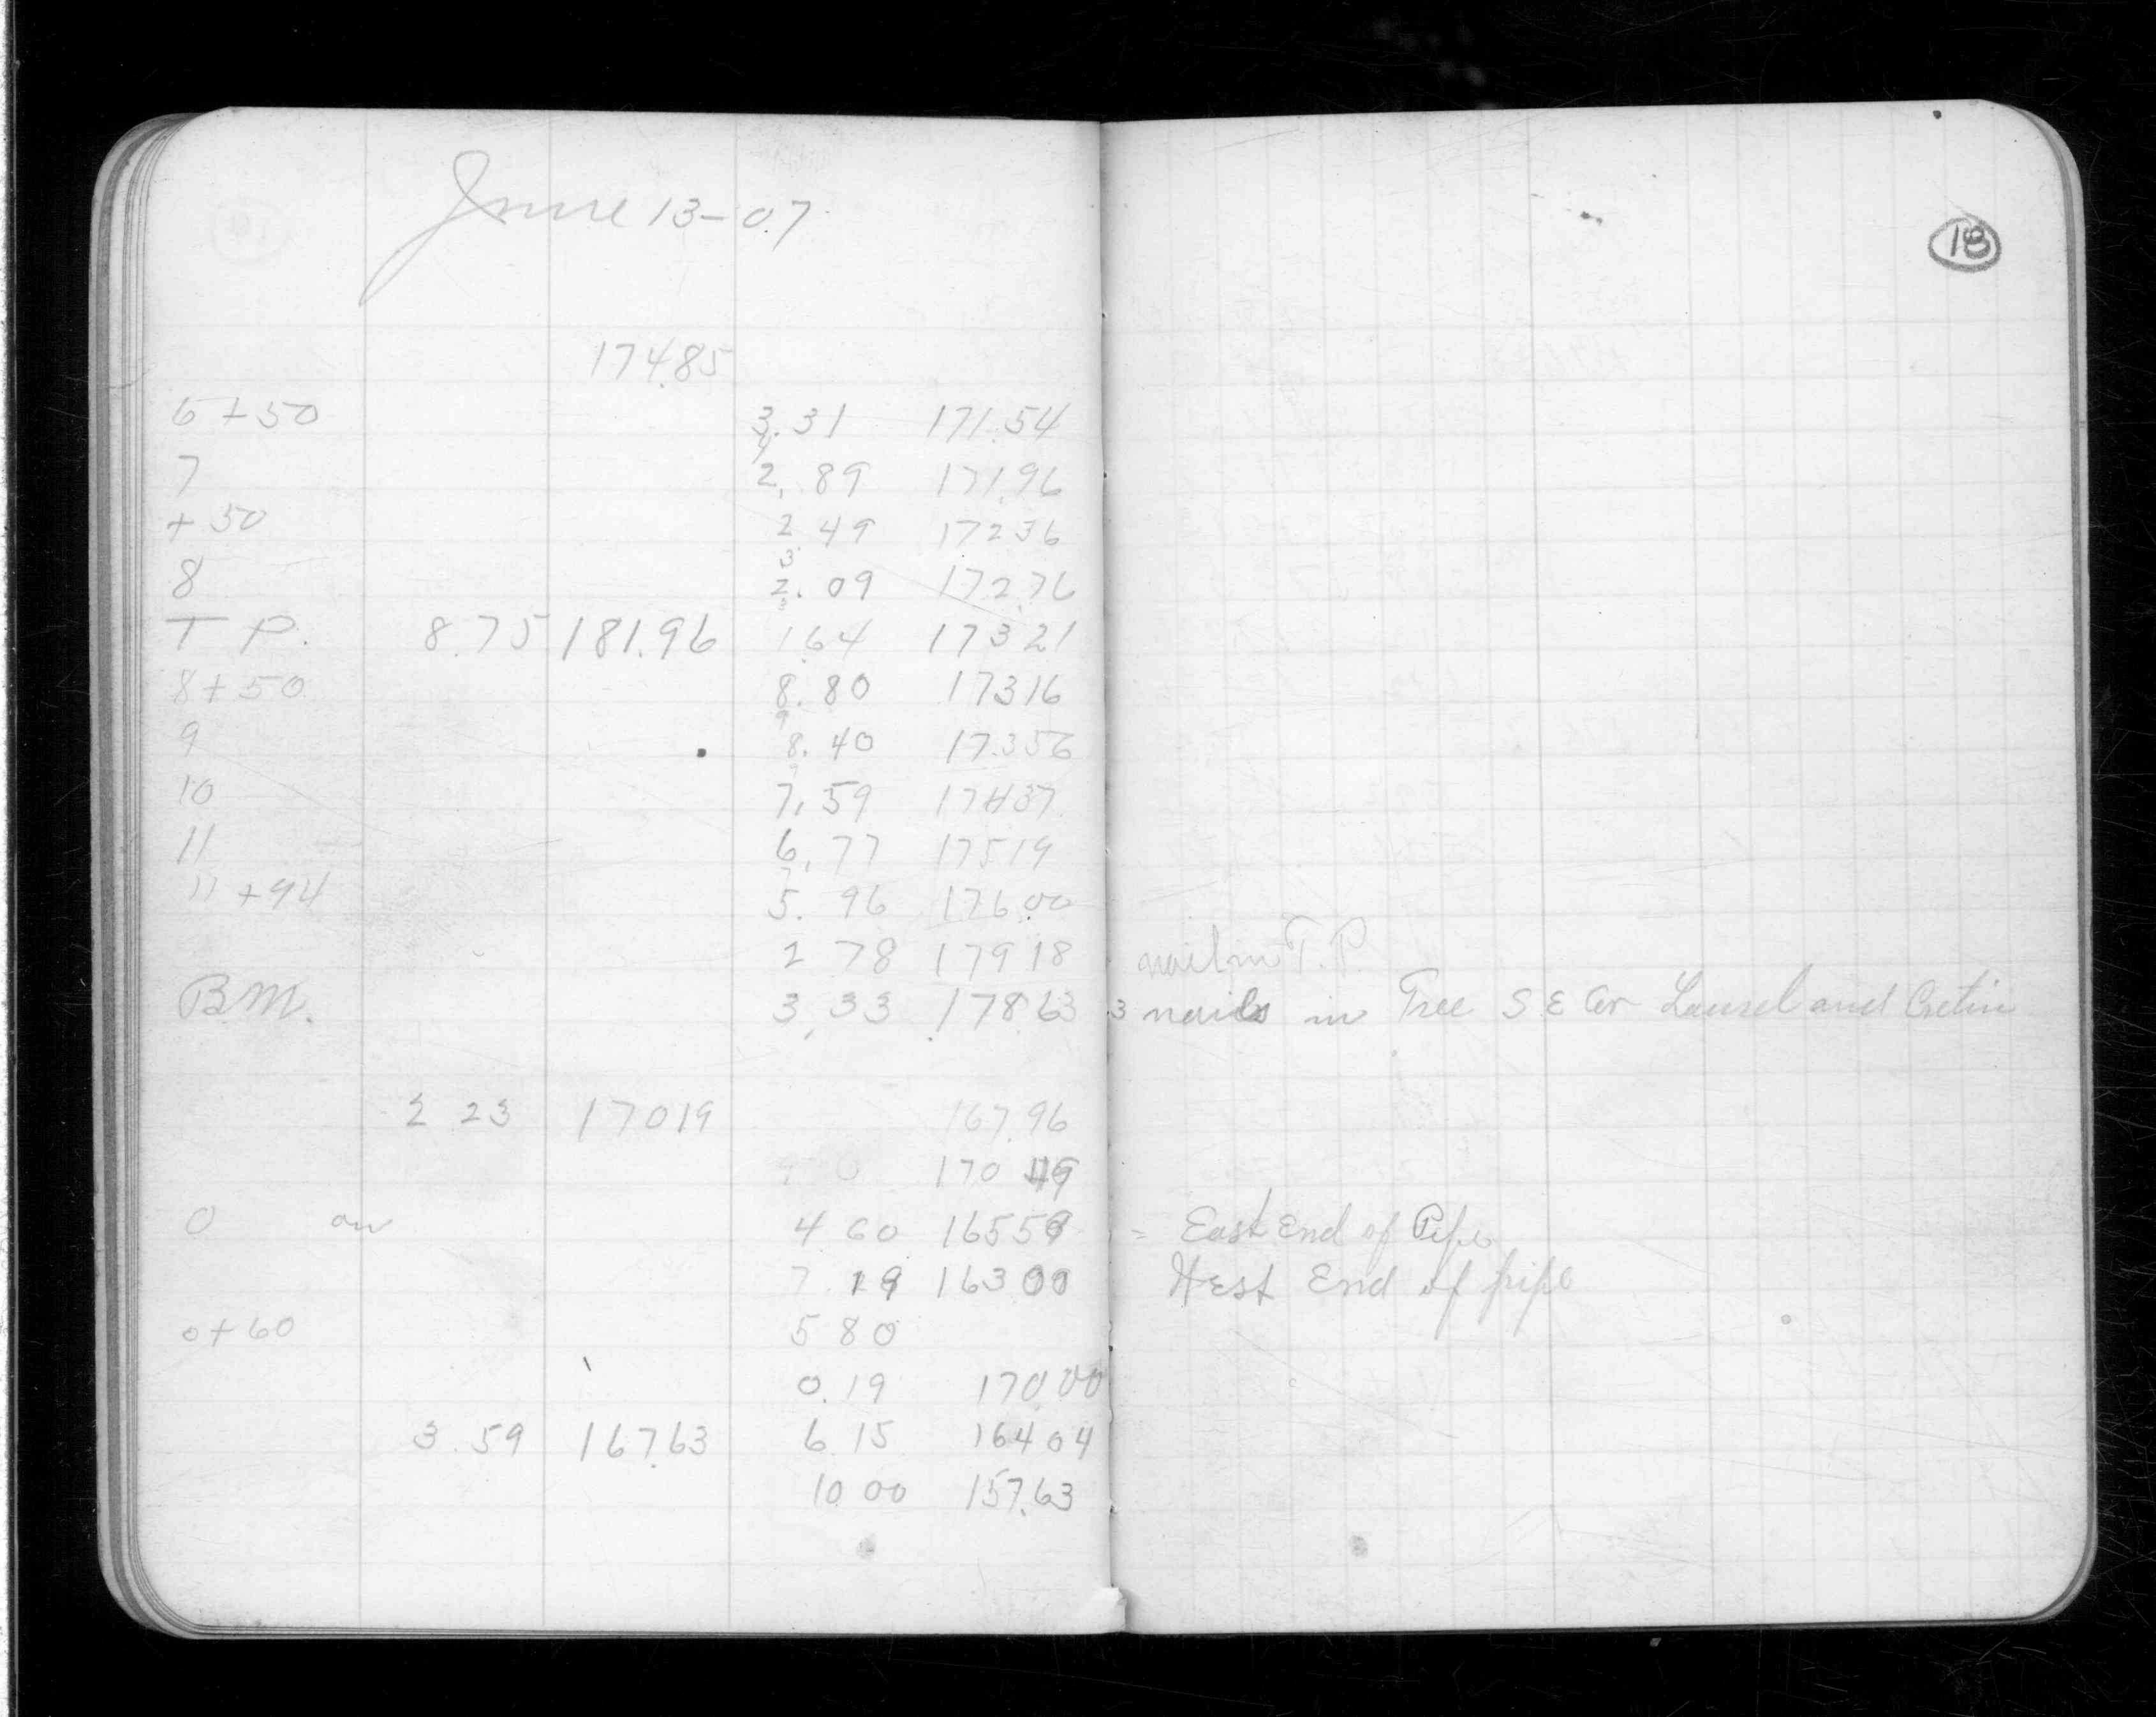 June 13-07
18
174.85
6+50 3.31 171.54
7 2.89 171.96
+50 2.49 172 36
8 2.09 172.76
T P. 8.75 181.96 1.64 173 21
8+50 8.80 173 16
9 8.40 17.356
10 7.59 174 37
11 6.77 175 19
11+94 5.96 176.00
2 78 179 18 nail in T.P.
B.M. 3.33 178.63 3 nails in Tree S E Cor Laurel and Cretin
2 23 170 19 167.96
170 19
0 on 4 60 165 59 = East End of Pipe
7.19 163 00 West End of pipe
0+60 5 80
0.19 170.00
3.59 167.63 6 15 164 04
10 00 157.63